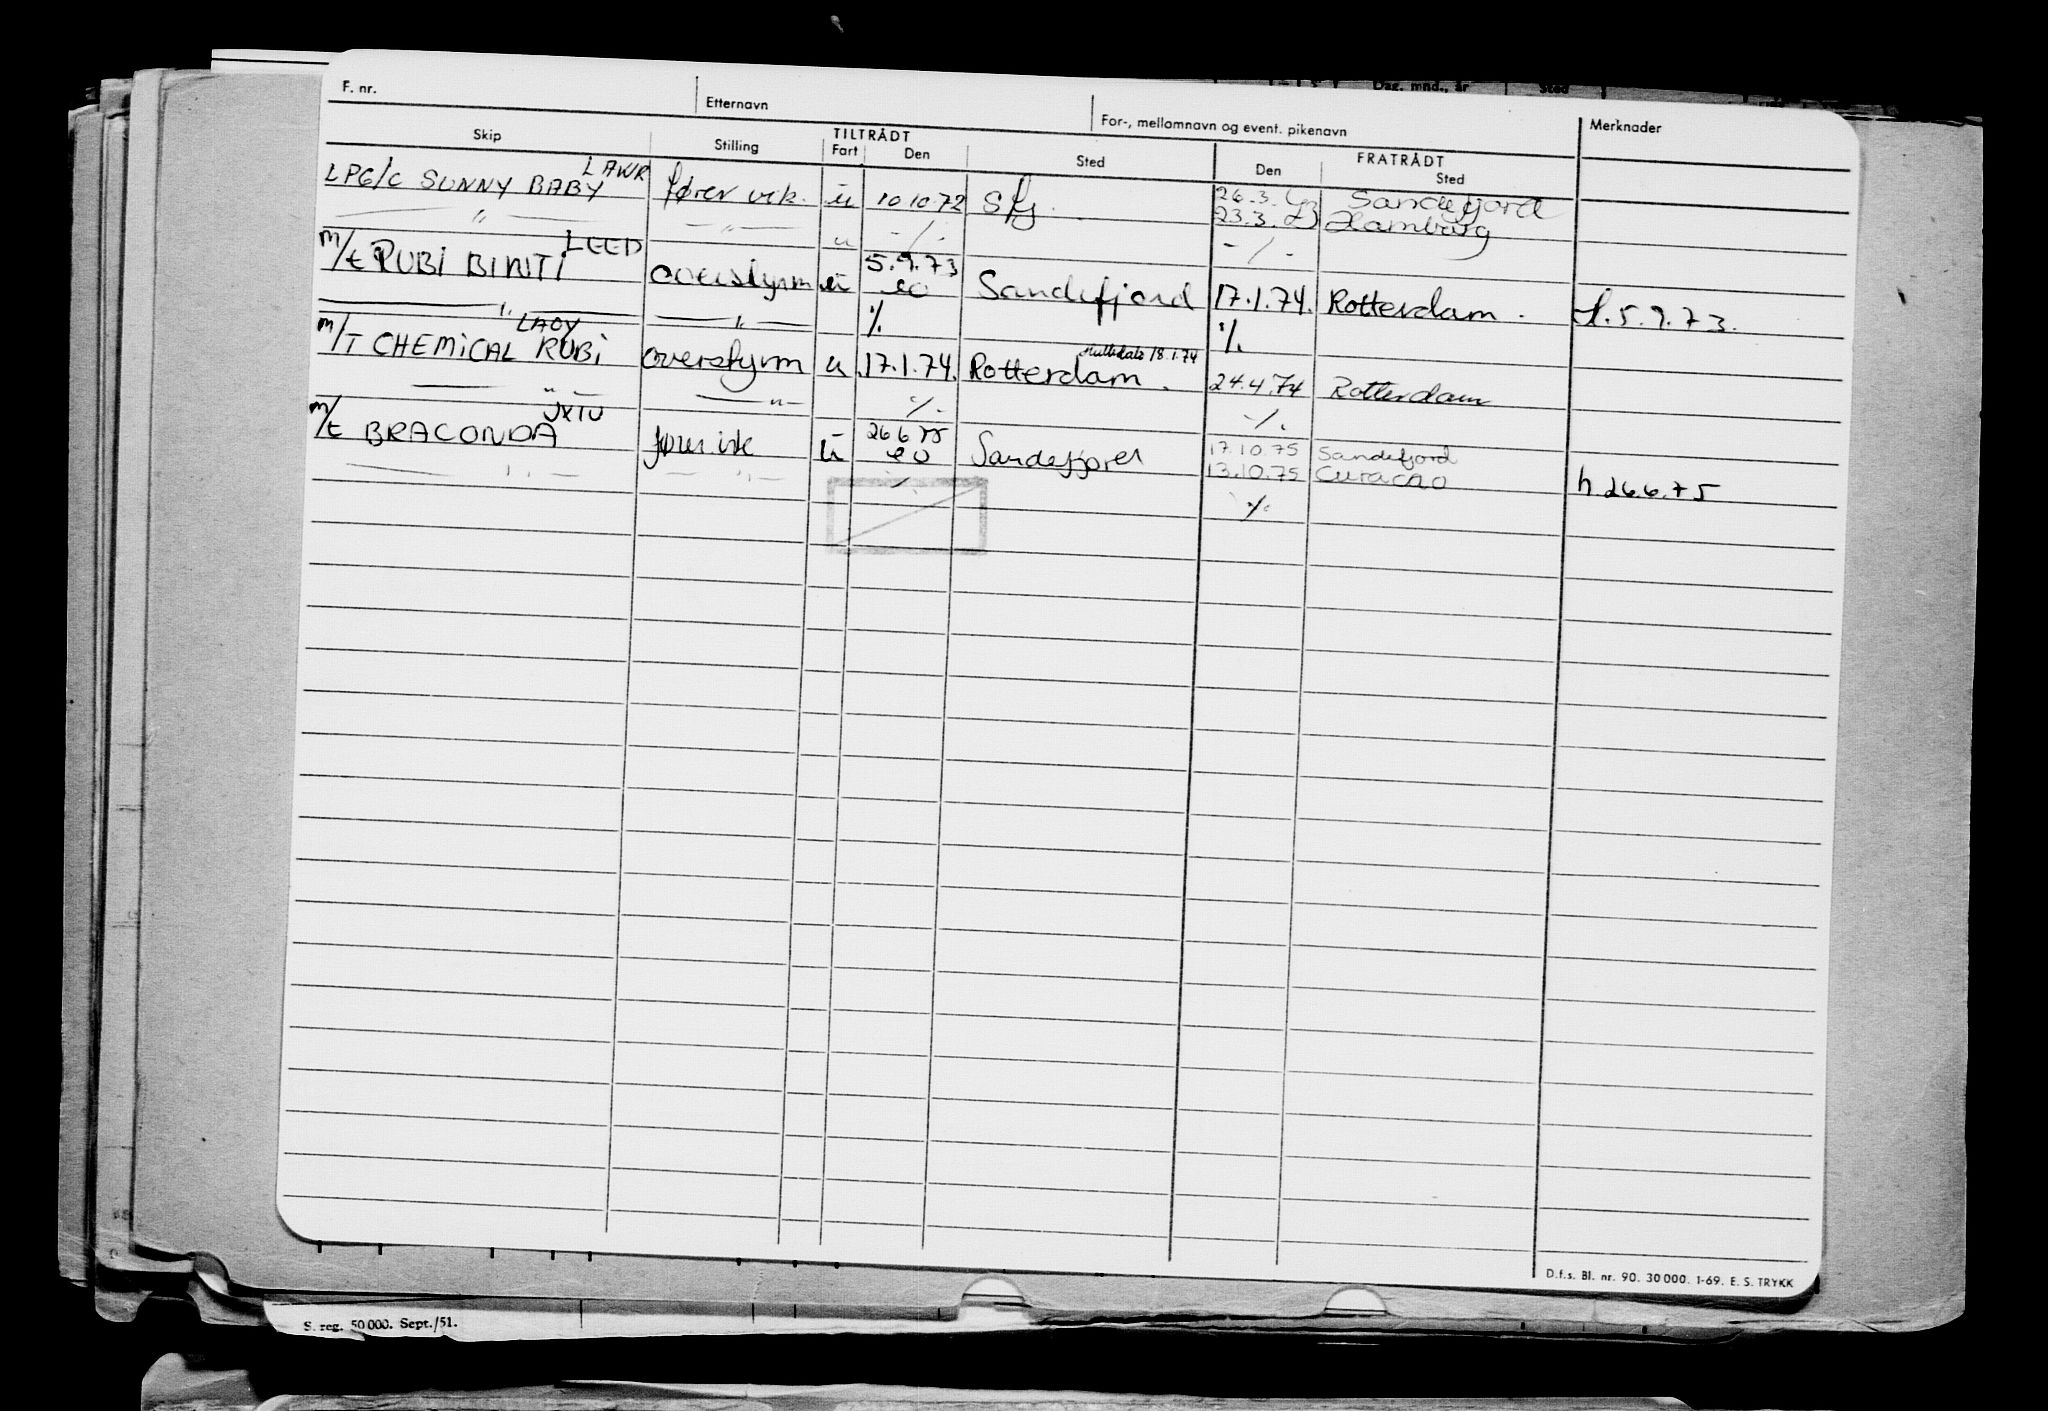 Dag, mnd., år Sted
F. nr. Etternavn For-, mellomnavn og event. pikenavn Merknader
TILTRÅDT FRATRÅDT
Skip Stilling Fart Den Sted Den Sted
LAWR 26.3. Sandefjord
LPG/C SUNNY BABY fører vik. u 10 10.72 Sfj. 23.3. Hamburg
— " — — " — u -/- -/-
LEED 5.9.73
m/t RUBI BINTI overstyrm u eo Sandefjord 17.1.74. Rotterdam. f. 5.9.73.
— " — — " — ·/. ·/.
LADY 18.1.74
m/T CHEMICAL RUBI overstyrm u 17.1.74. Rotterdam. 24.4.74 Rotterdam
— " — — " — ·/- -/.
JXTU 26 6 75 17.10.75 Sandefjord
m/t BRACONDA fører vik u eo Sandefjord 13.10.75 Curacao h 26.6.75
— " — — " — ·/. ·/.
D.f.s. Bl. nr. 90. 30 000. 1-69. E. S. TRYKK
S. reg. 50 000. Sept./51.